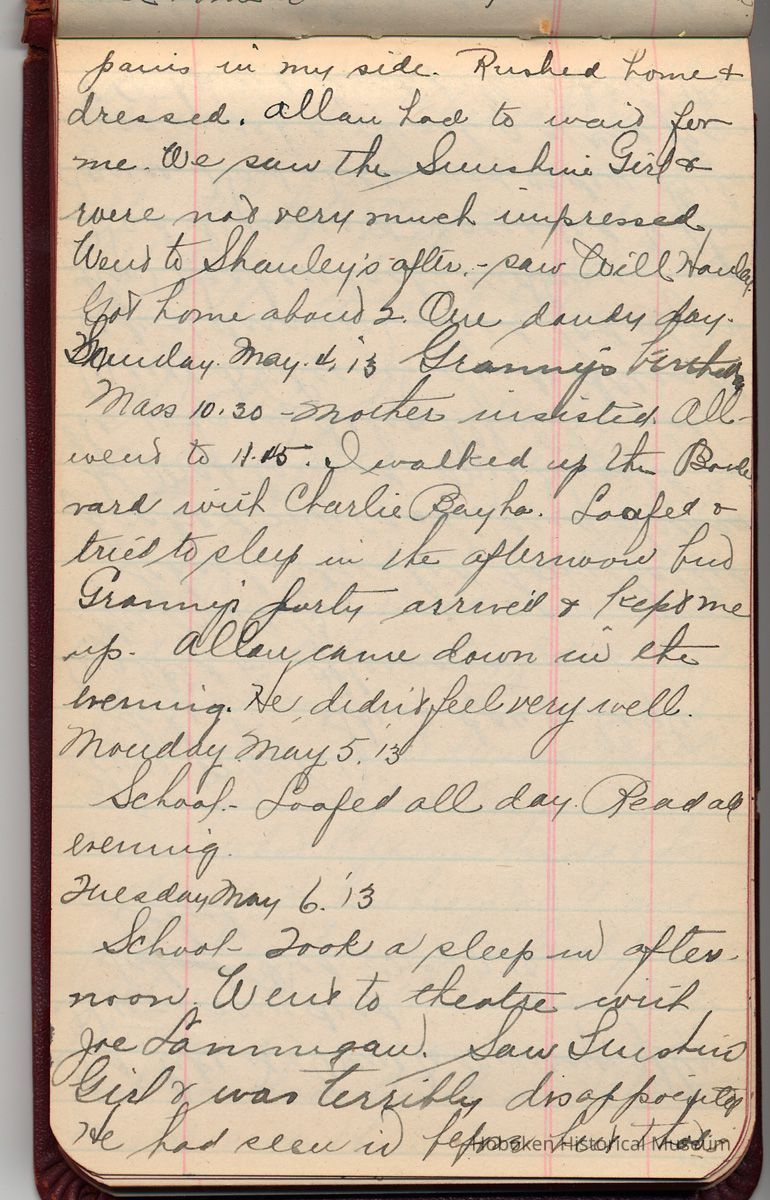 pains in my side. Rushed home &
dressed. Allan had to wait for
me. We saw the Sunshine Girl &
were not very much impressed
Went to Shanley's after. - saw Will Hanley.
Got home about 2. One dandy day.
Sunday. May. 4, '13 Granny's birthday
Mass 10.30 - Mother insisted. All
went to 11.15. I walked up the Boule
vard with Charlie Bayha. Loafed &
tried to sleep in the afternoon but
Granny's party arrived & kept me
up. Allan came down in the
evening. He didn't feel very well.
Monday May 5. '13
School. - Loafed all day. Read all
evening.
Tuesday May 6. '13
School Took a sleep in after-
noon. Went to theatre with
Joe Lannigan. Saw Sunshine
Girl & was terribly disappointed
He had seen it before but
Hoboken Historical Museum